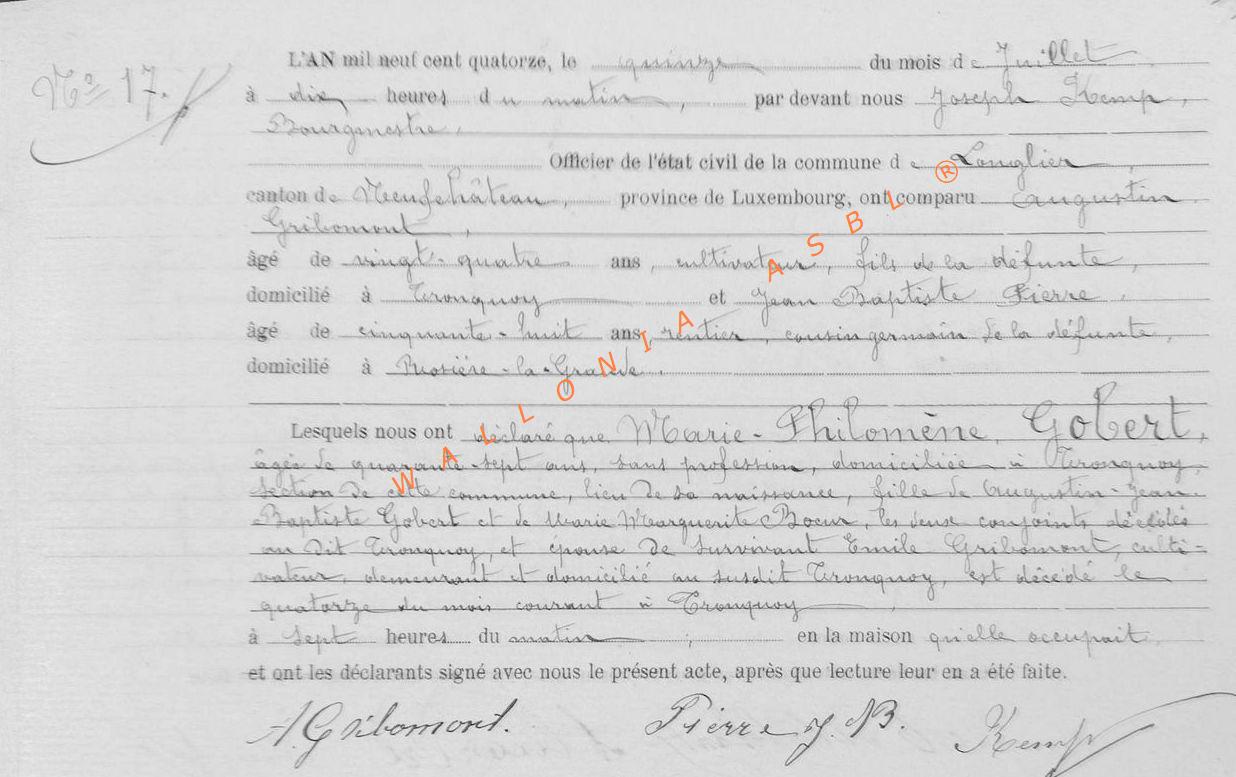 No 17.
L'AN mil neuf cent quatorze, le quinze du mois de Juillet
à dix heures du matin, par devant nous Joseph Kemp,
Bourgmestre,
Officier de l'état civil de la commune de Longlier,
canton de Neufchâteau, province de Luxembourg, ont comparu Augustin
Gribomont,
âgé de vingt-quatre ans, cultivateur, fils de la défunte,
domicilié à Tronquoy et Jean Baptiste Pierre,
âgé de cinquante-huit ans, rentier, cousin germain de la défunte,
domicilié à Rosière-la-Grande.
Lesquels nous ont déclaré que Marie-Philomène Gobert,
âgée de quarante-sept ans, sans profession, domiciliée à Tronquoy,
section de cette commune, lieu de sa naissance, fille de Augustin-Jean-
Baptiste Gobert et de Marie Marguerite Bocur, les deux conjoints décédés
au dit Tronquoy, et épouse de survivant Emile Gribomont, culti=
vateur, demeurant et domicilié au susdit Tronquoy, est décédé le
quatorze du mois courant à Tronquoy,
à sept heures du matin, en la maison qu'elle occupait
et ont les déclarants signé avec nous le présent acte, après que lecture leur en a été faite.
A. Gribomont. Pierre J. B. Kemp
WALLONIA ASBL ®